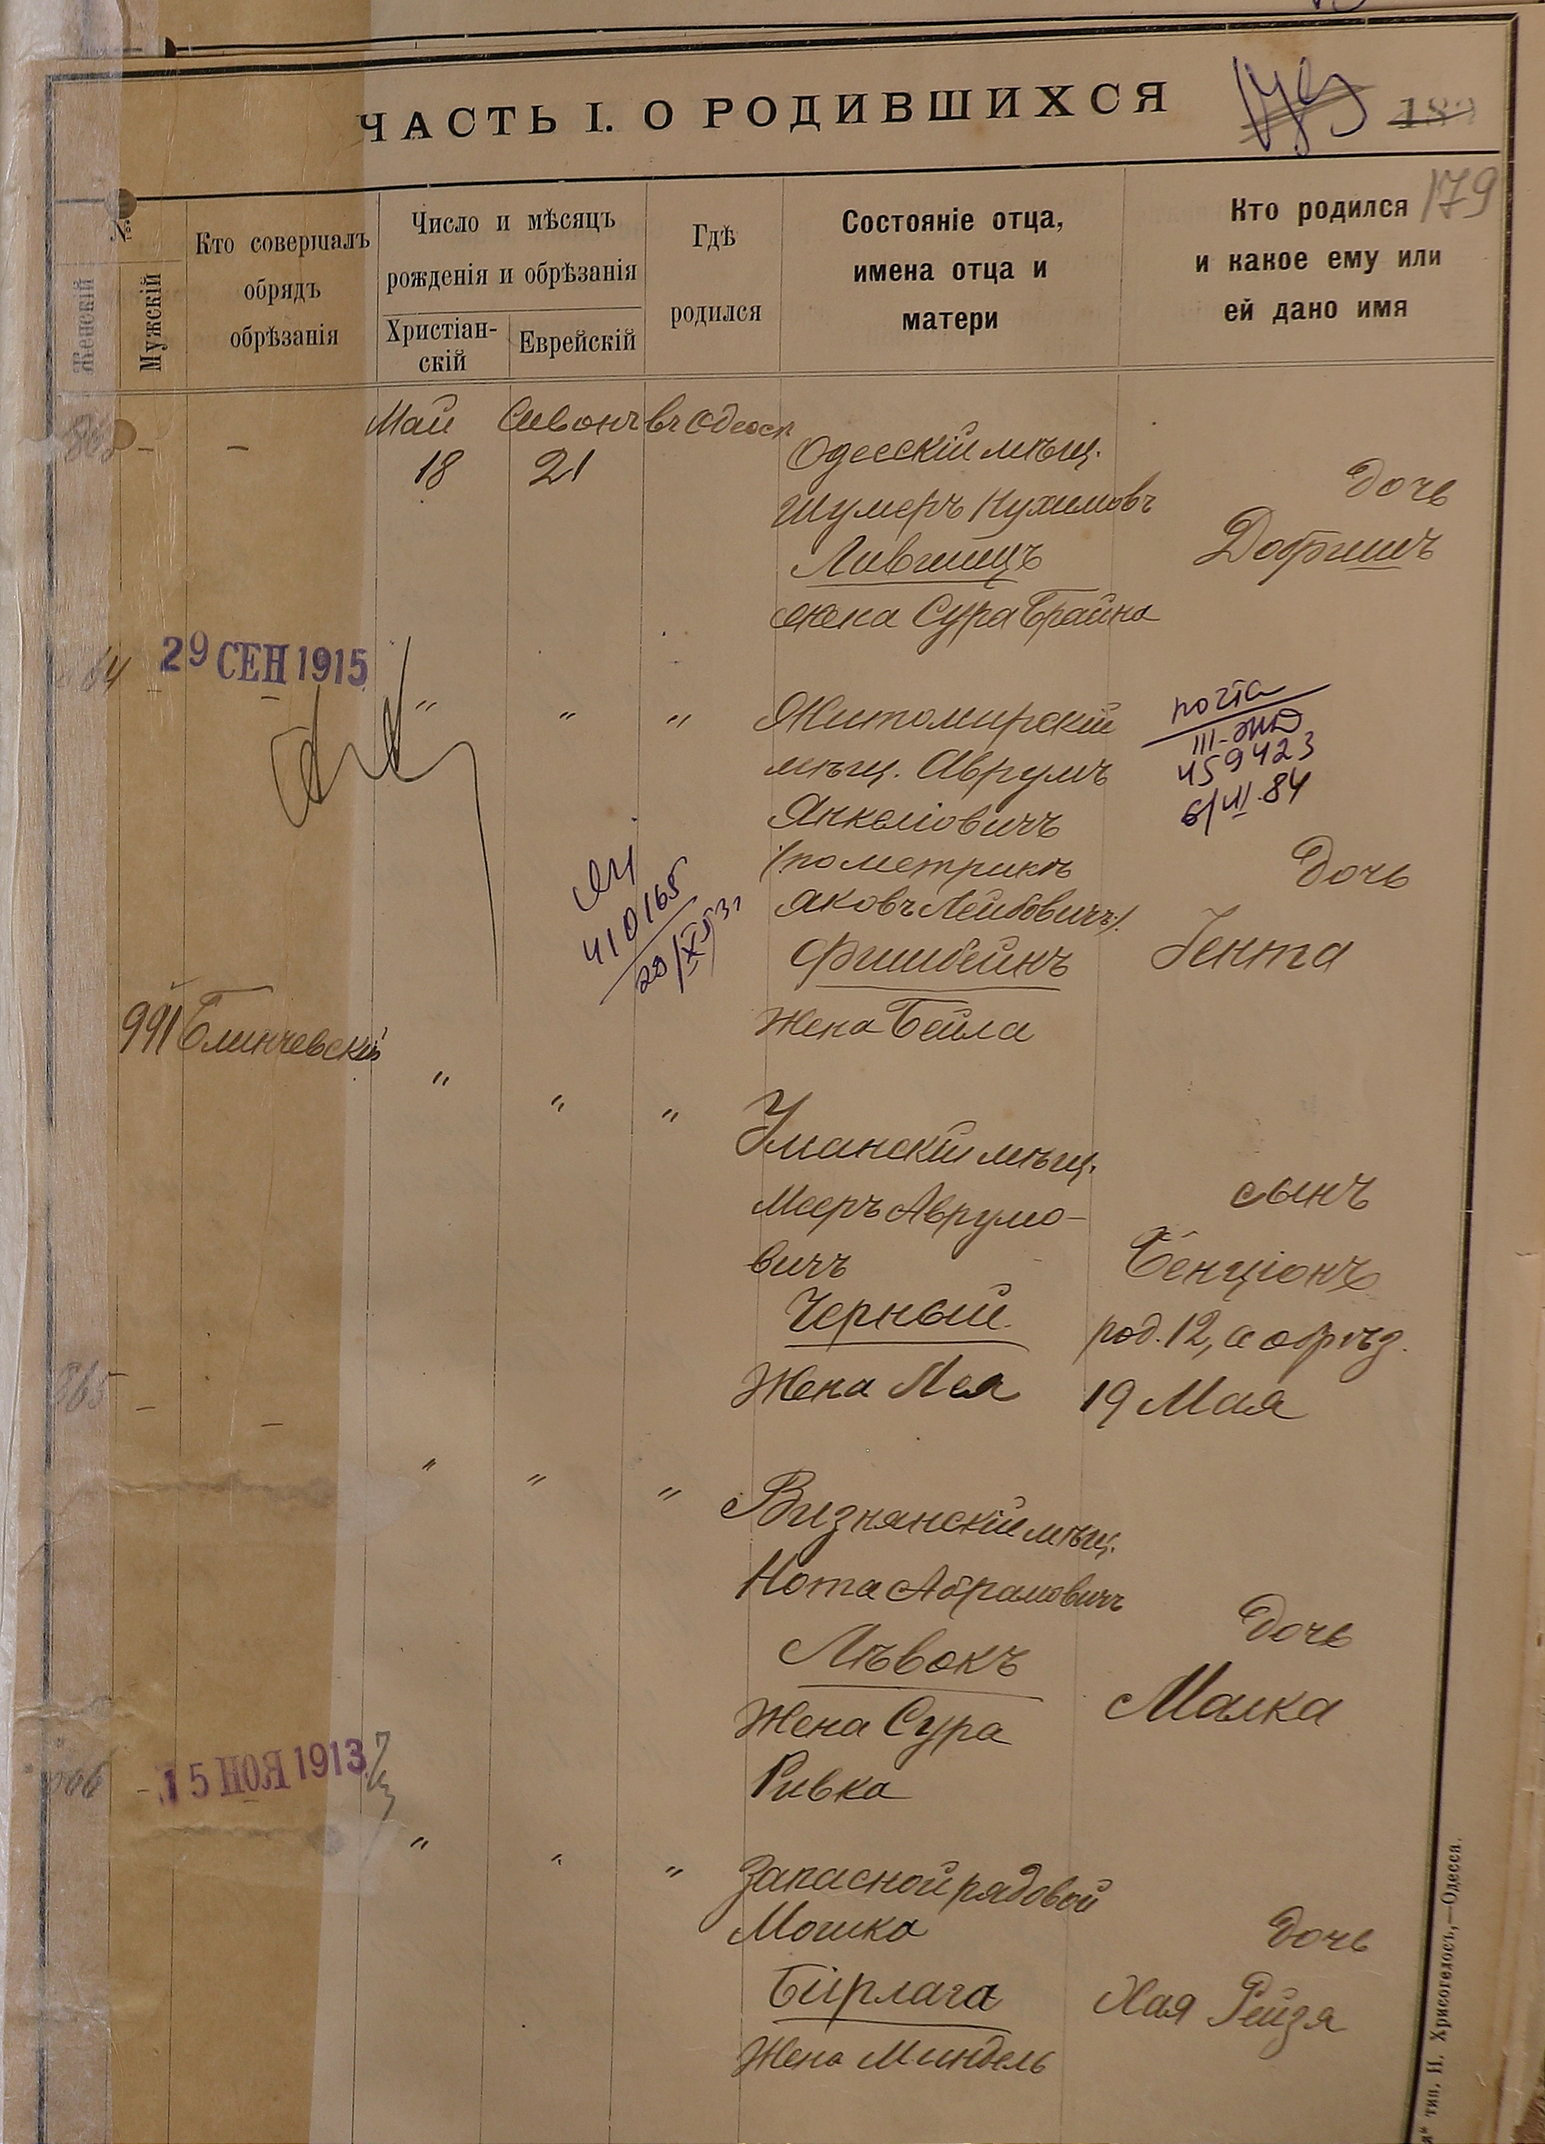 ЧАСТЬ I. О РОДИВШИХСЯ
179
№
Женскій
Мужскій
Кто совершалъ
обрядъ
обрѣзанія
Число и мѣсяцъ
рожденія и обрѣзанія
Христіан-
скій
Еврейскій
Гдѣ
родился
Состояніе отца,
имена отца и
матери
Кто родился
и какое ему или
ей дано имя
Май Сивонъ въ Одессѣ
18 21
Одесскій мѣщ.
Шумеръ Нухимовъ
Лившицъ
жена Сура Брайна
дочь
Добришъ
29 СЕН 1915
" " "
Житомирскій
мѣщ. Аврумъ
Янкеліовичъ
(по метрикѣ
Яковъ Лейбовичъ).
Фишбейнъ
Жена Бейла
почта
459423
6/VI.84
дочь
Іента
410165
991 Блинчевскій
" " "
Уманскій мѣщ.
Мееръ Аврумо-
вичъ
Черный.
Жена Лея
сынъ
Бенціонъ
род. 12, а обрѣз.
19 Мая
865 - -
" " "
Визнянскій мѣщ.
Нота Абрамовичъ
Лѣвокъ
Жена Сура
Ривка
дочь
Малка
866 -
15 НОЯ 1913
" " "
Запасной рядовой
Мошка
Бирлага
Жена Миндель
дочь
Хая Рейзя
тип. И. Хрисогелосъ,—Одесса.